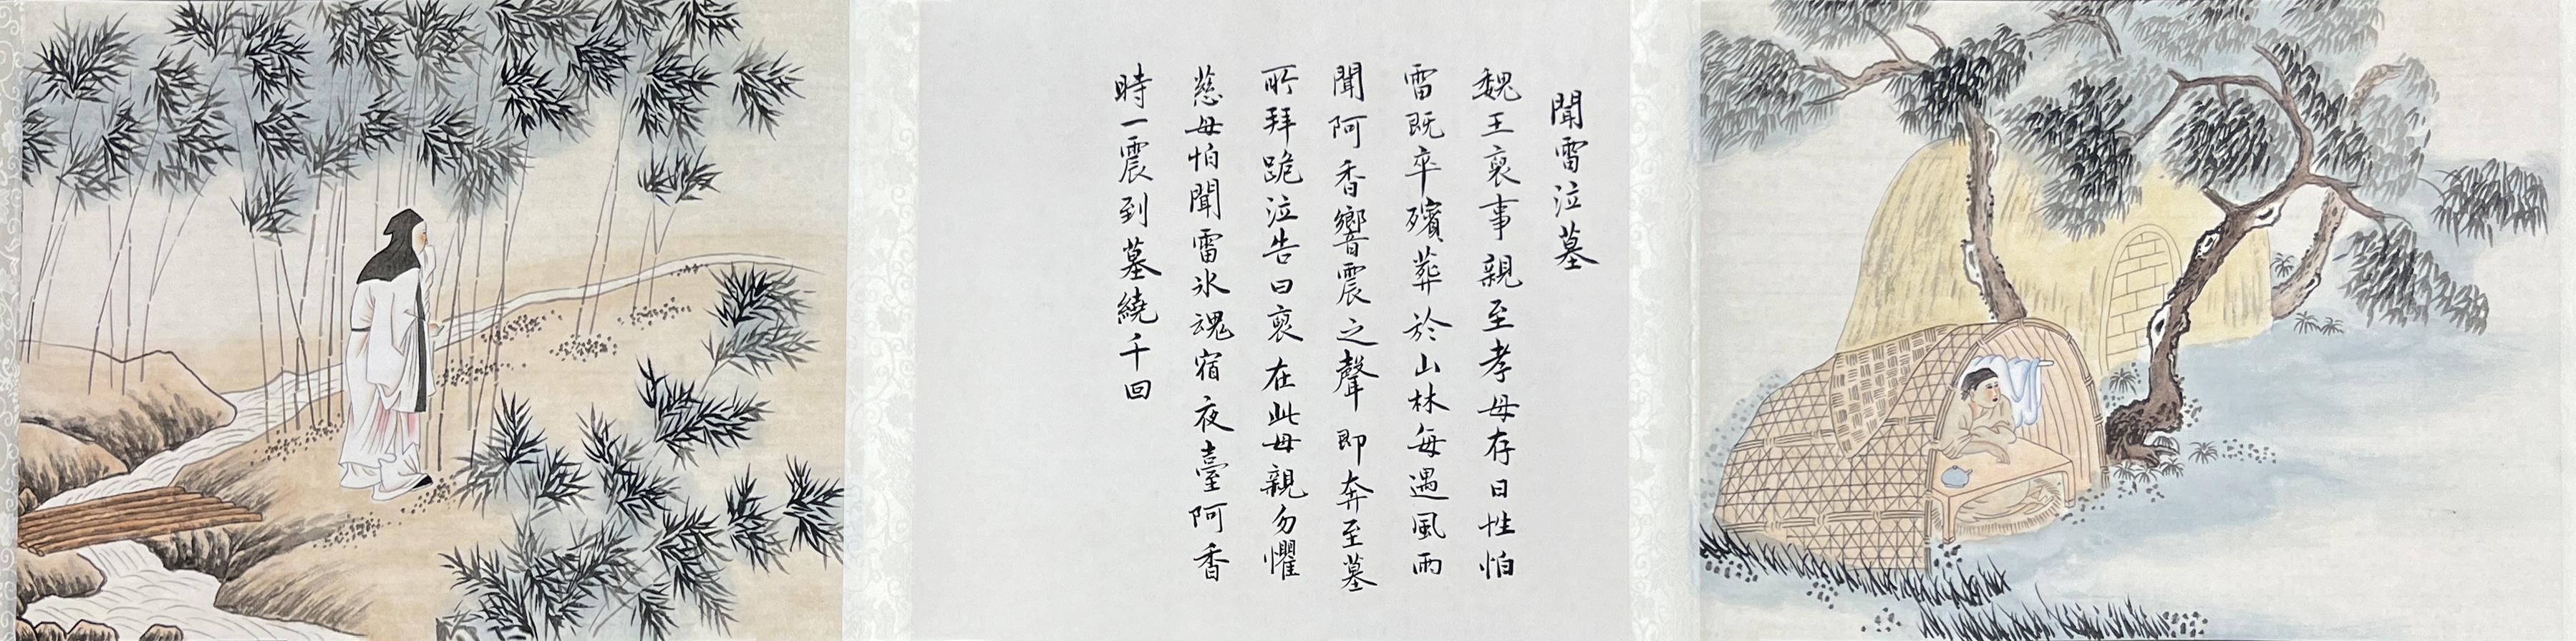 聞雷泣墓
魏王裒事親至孝母存日性怕
雷既卒殯葬於山林每遇風雨
聞阿香響震之聲即奔至墓
所拜跪泣告曰裒在此母親勿懼
慈母怕聞雷氷魂宿夜臺阿香
時一震到墓繞千回